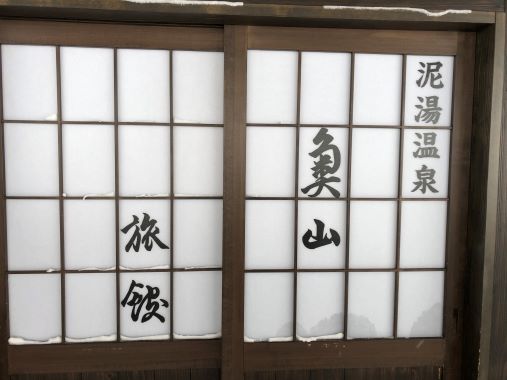 泥湯温泉
奥山
旅館